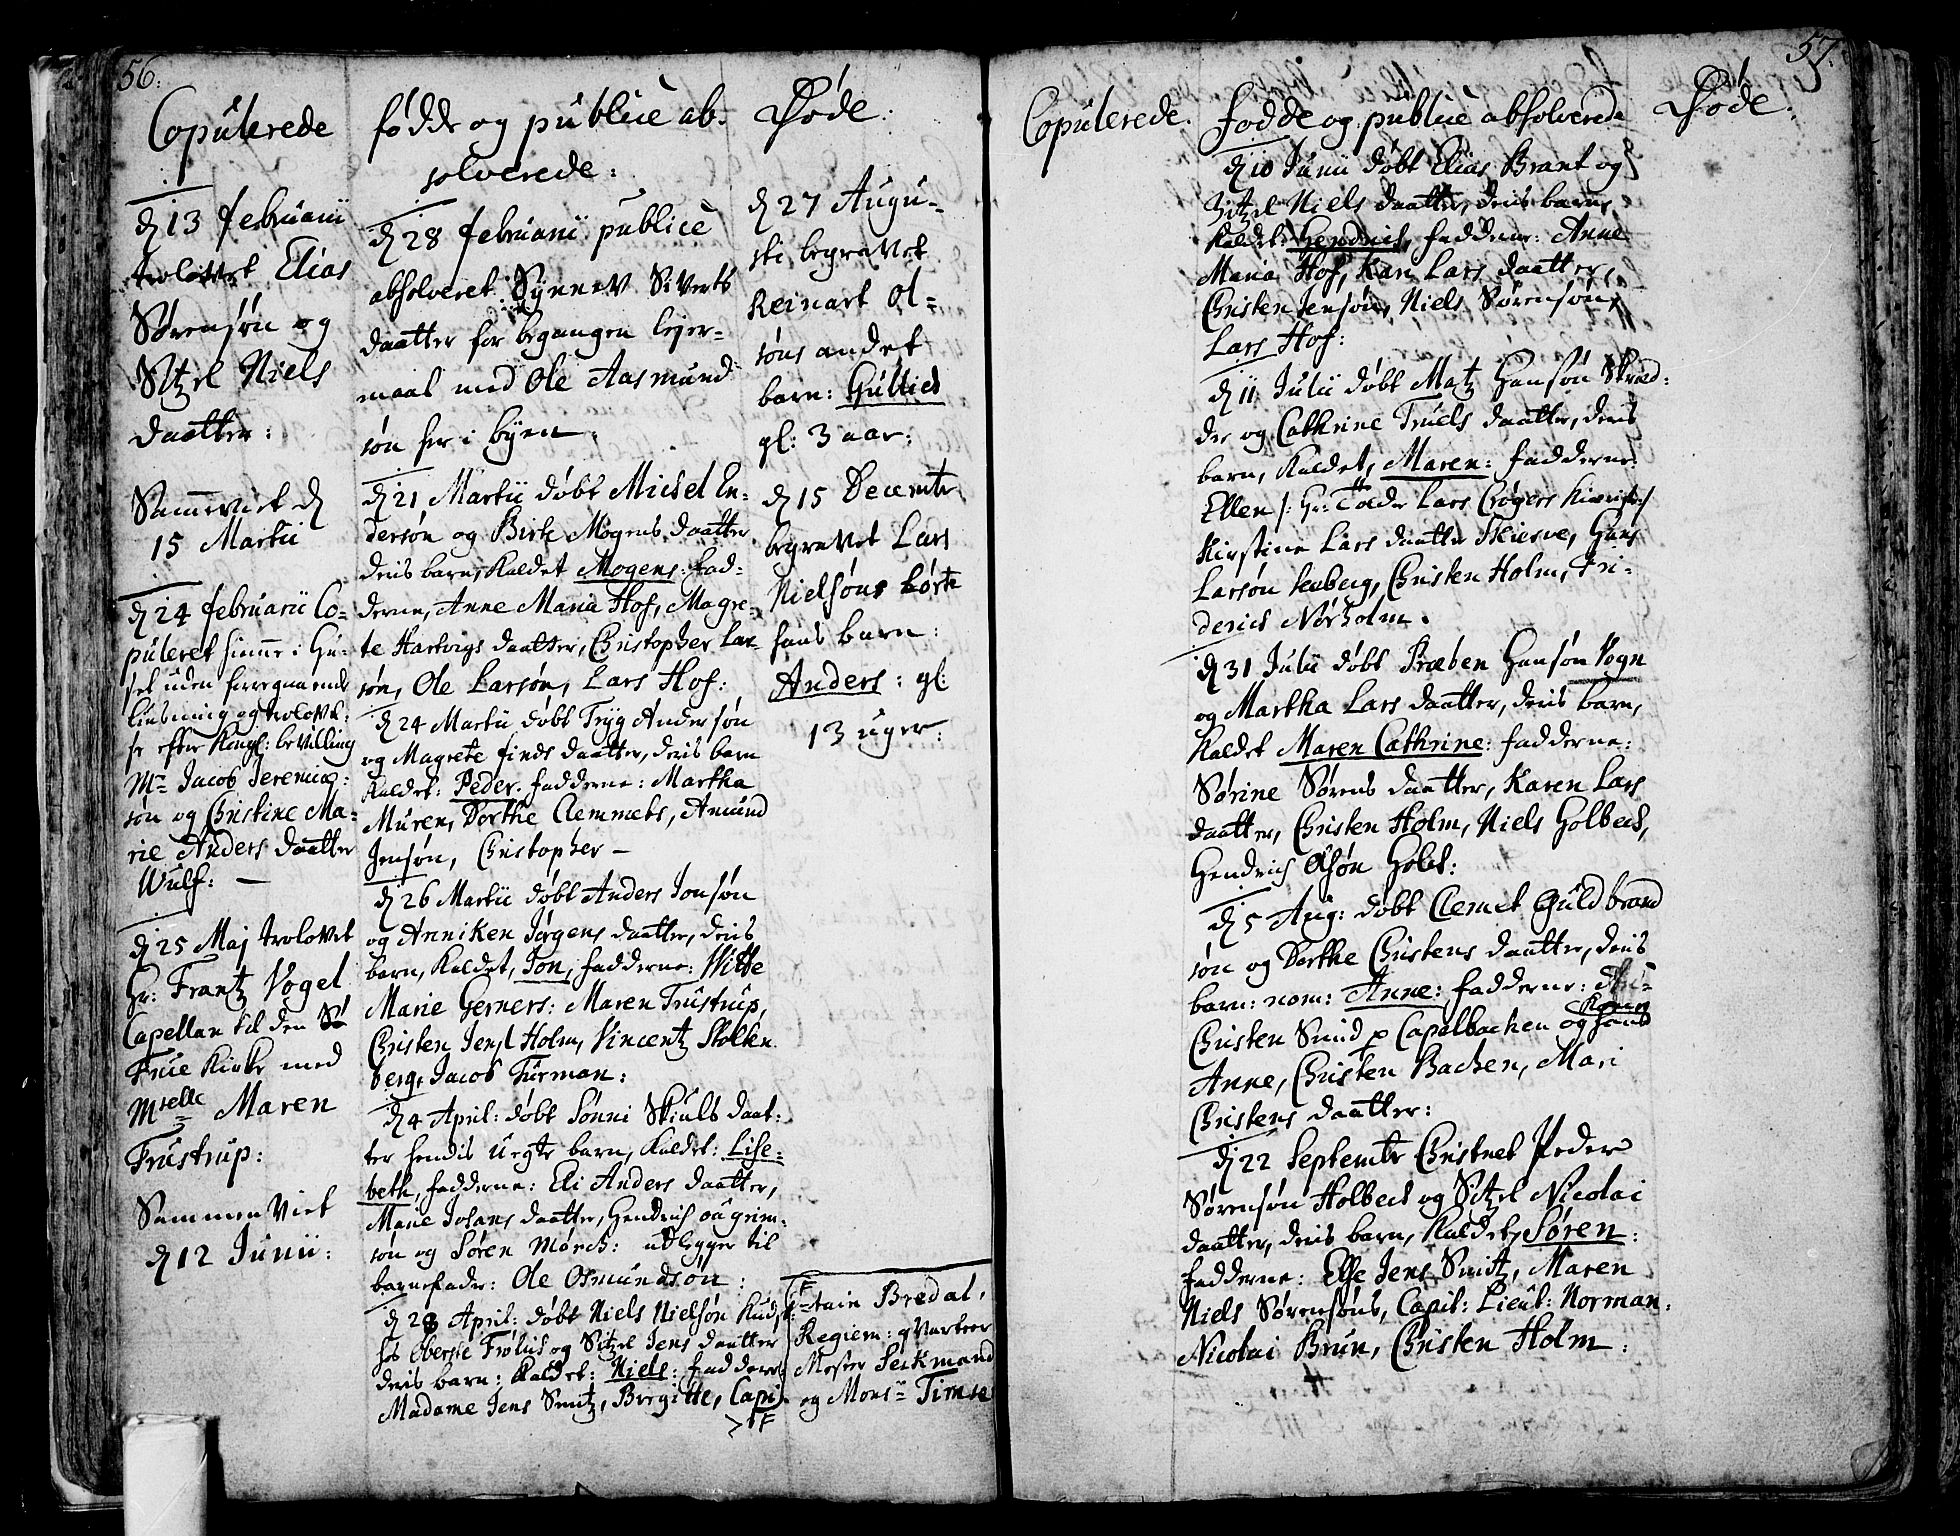 56.
Copulerede
d 13 februarii
trolovet Elias
Sørensøn og
Sitzel Niels
daatter:
Sammeviet d
15 Martii
d 24 februarii Co-
puleret hiemme i Hu-
set uden foregaaende
liusning og trolovel-
se efter Kongl: bevilling
Mr Jacob Jeremiæ-
søn og Christine Ma-
rie Anders daatter
Wulf: —
d 25 Maj trolovet
Hr: Frantz Vogel
Capellan til den
Frue Kirke med
Mselle Maren
Trustrup:
Sammenviet
d 12 Junii:
fødde og publicè ab-
solverede:
d 28 februarii publicè
absolveret Synnev Siverts
daatter for begangen lejer-
maal med Ole Aasmund
søn her i byen.
d 21 Martii døbt Michel En-
dersøn og Birte Mogens daatter
deris barn, Kaldet Mogens: fad-
derne, Anne Maria Hof, Magre-
te Hartvigs daatter, Christopher Lar-
søn, Ole Larsøn, Lars Hof:
d 24 Martii døbt Tryg Andersøn
og Magrete finds daatter, deris barn
Kaldet: Peder. fadderne: Martha
Muren, Dorthe Clemmets, Amund
Jensøn, Christopher —
d 26 Martii døbt Anders Jonsøn
og Anniken Jørgens daatter, deris
barn, Kaldet, Jon, fadderne: Witte
Marie Gerners: Maren Trustrup,
Christen Jensl Holm, Vincentz Stolten
berg, Jacob Furman:
d 4 April: døbt Sønni Skiuls daat-
ter hendis uegte barn, Kaldet: Lise-
beth, fadderne: Eli Anders daatter,
Marie Johans daatter, Hendrich
søn og Søren Mørch: udlegger til
barnefader: Ole Osmundsøn:
d 28 April: døbt Niels Nielsøn Kudsk
hos Oberste Frølich og Sitzel Jens daatter
deris barn: Kaldet: Niels: fadderne
Madame Jens Smitz, Bergitte, Capi-
Døde:
d 27 Augu-
sti begravet
Reinart Ol-
søns andet
barn: Gullich
gl: 3 aar:
d 15 Decembr
begravet Lars
Nielsøns
hans barn:
Anders: gl:
13 uger:
-tain Bredal,
Regiem: qvarteer
Mester Seckmand
og Monsr Timse
57.
Copulerede.
fødde og publicè absolverede
d 10 Junii døbt Elias Brant og
Sitzel Niels daatter, deris barn,
Kaldet: Hendrich, fadderne: Anne
Maria Hof, Kari Lars daatter,
Christen Jensøn, Niels Sørensøn,
Lars Hof:
d 11 Julii døbt Matz Hansøn Skræd-
der og Cathrine Truels daatter, deris
barn, Kaldet, Maren: fadderne:
Ellen /: Hr: Lars Crøgers
Kirstine Lars daatter Skierve, Hans
Larsøn Seeberg, Christen Holm, Fri-
derich Nørholm.
d 31 Julii døbt Præben Hansøn Vogn
og Martha Lars daatter, deris barn,
Kaldet Maren Cathrine: fadderne:
Sørine Sørens daatter, Karen Lars
daatter, Christen Holm, Niels Holbech,
Hendrich Olsøn Holch:
d 5 Aug: døbt Clemet Guldbrand
søn og Dorthe Christens daatter, deris
barn: nom: Anne: fadderne:
Christen Smid p Capelbachen og hans
Kone
Anne, Christen Bachen, Mari
Christens daatter:
d 22 Septembr Christnet Peder
Sørensøn Holbech og Sitzel Nicolai
daatter, deris barn, Kaldet Søren:
fadderne: Else Jens Smitz, Maren
Niels Sørensøns, Capit: Lieut: Norman:
Nicolai Brun, Christen Holm:
Døde.